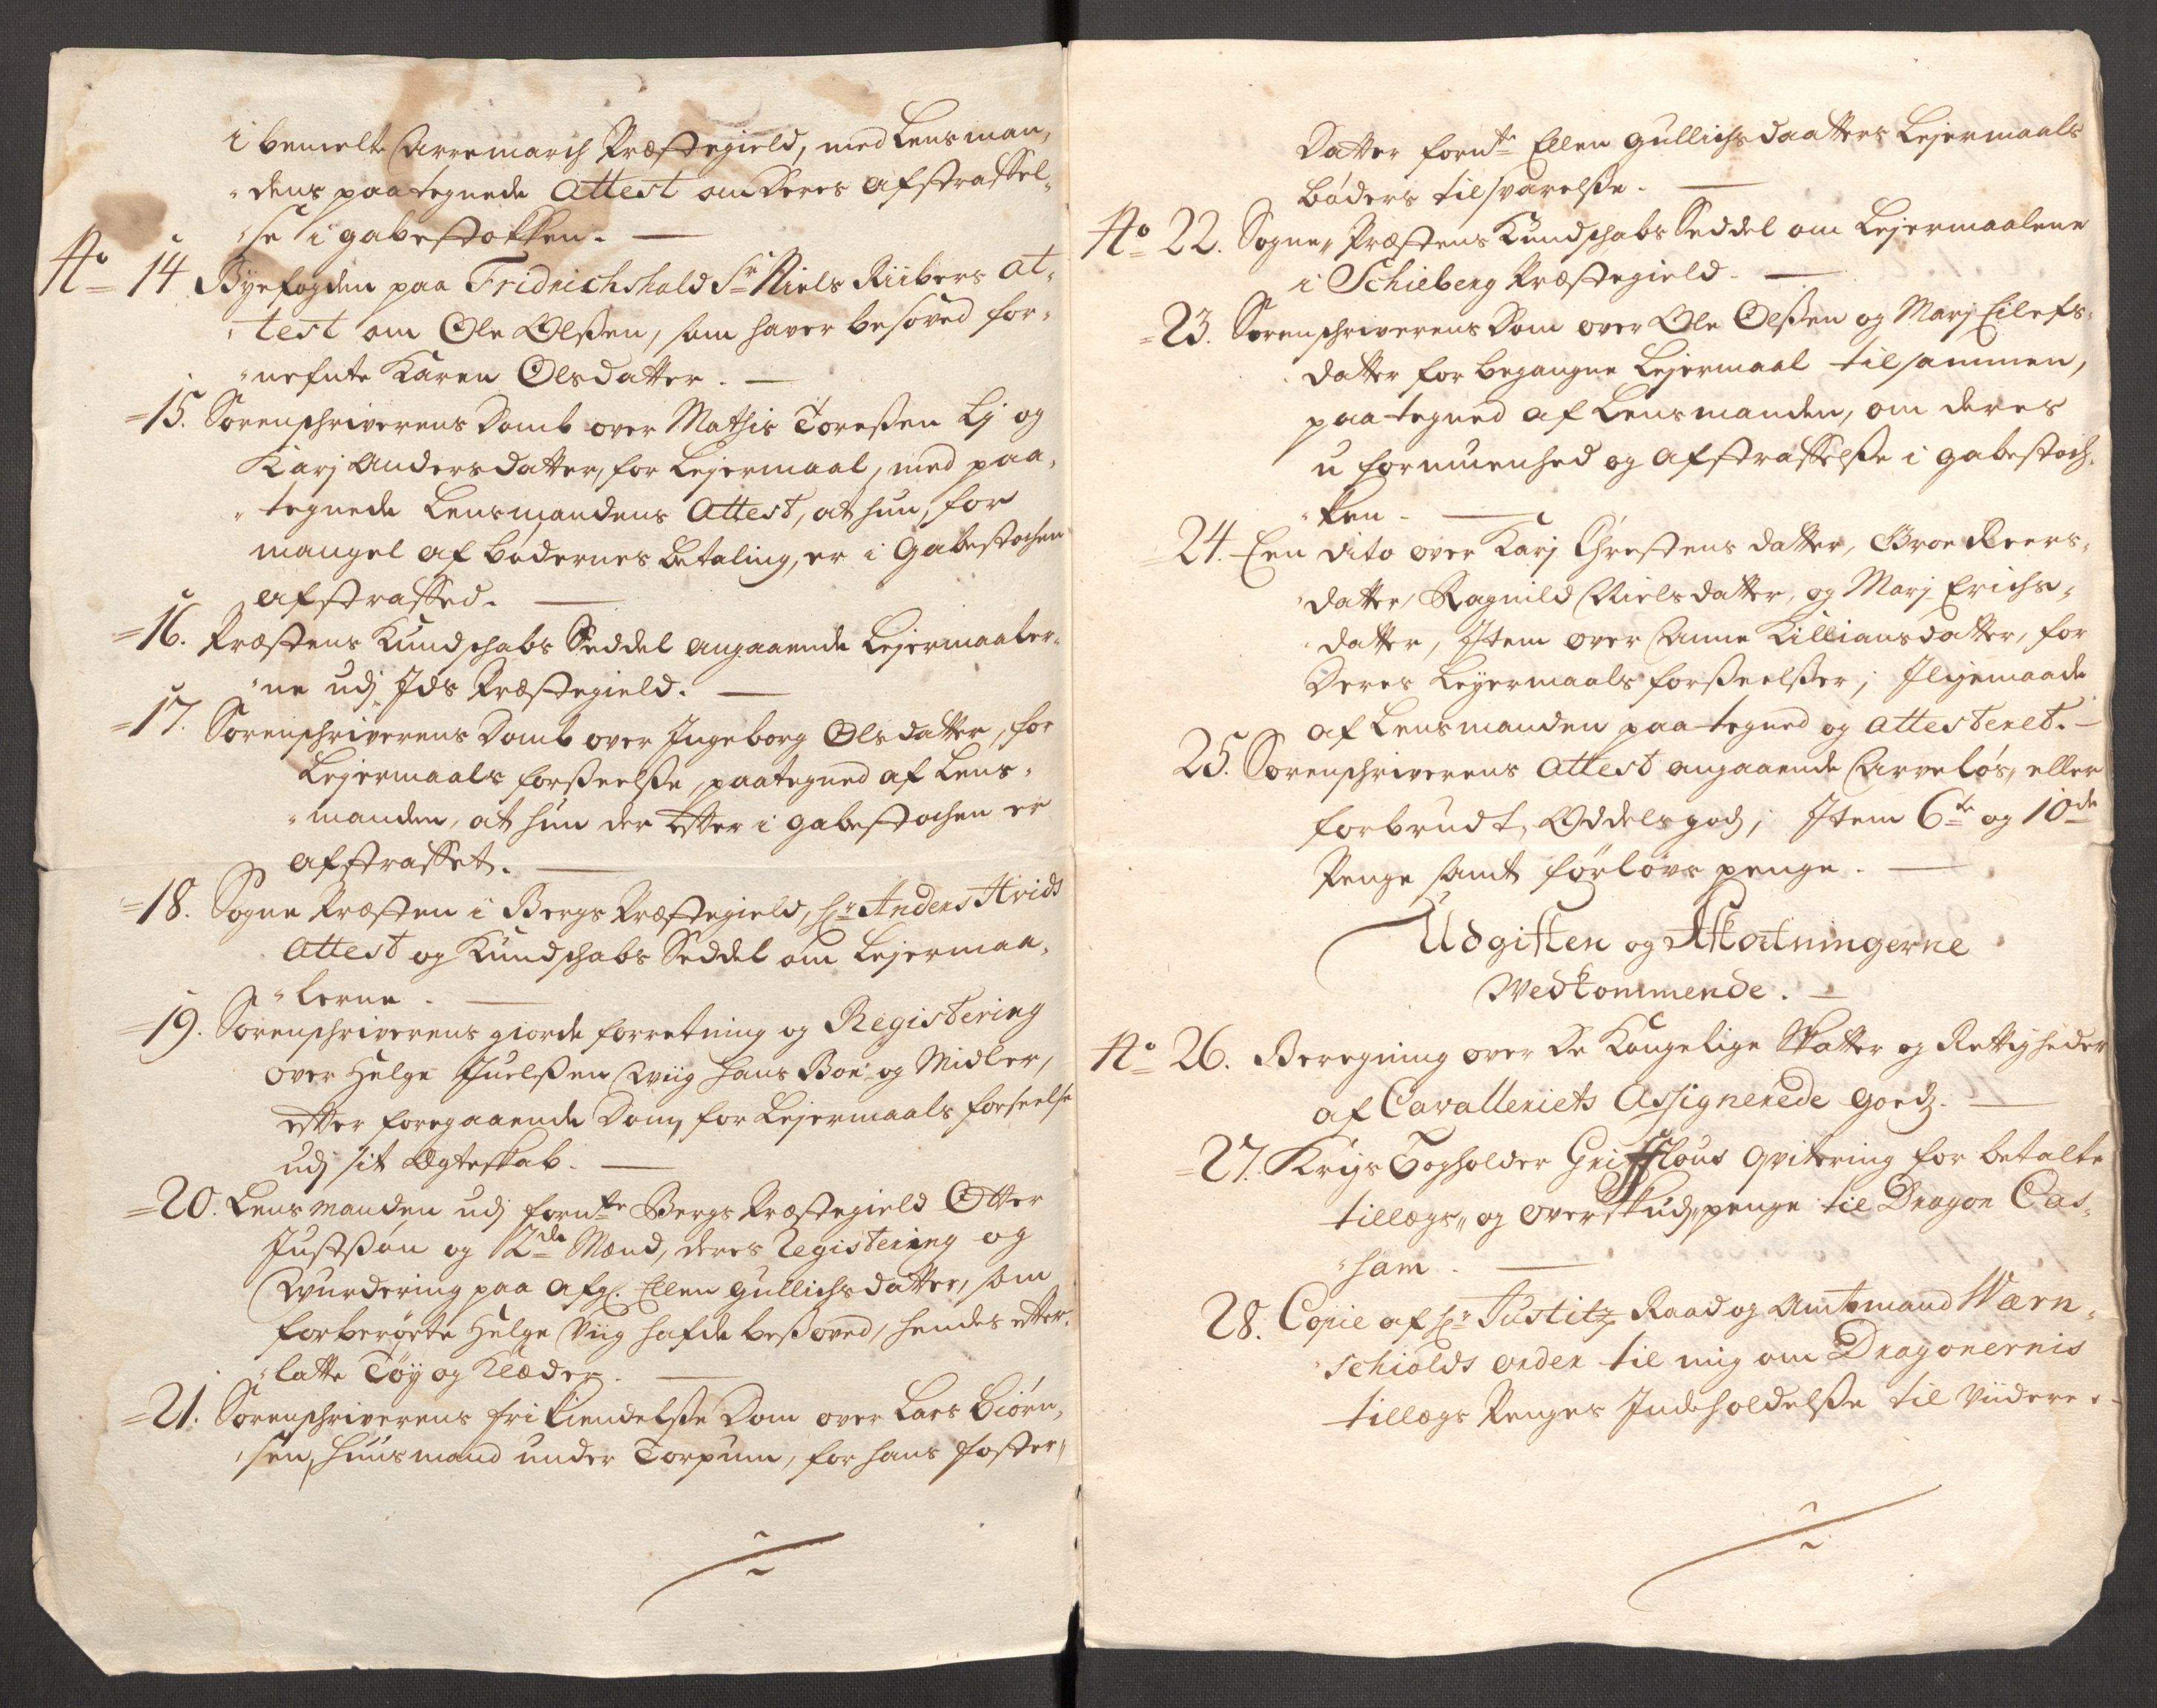 i bemelte Arremarch Præstegield, med Lensman„
„dens paategnede Attest om deres afstraffel„
„se i gabestokken. —
No 14 Byefogden paa Fridrichshald Sr Niels Riibers At„
„test om Ole Olßen, som haver besoved for„
„nefnte Karen Olsdatter. —
=15. Sorenschriverens Domb over Mathis Toreßen Lj og
Karj Andersdatter, for Lejermaal, med paa„
„tegnede Lensmandens Attest, at hun, for
mangel af bødernes betaling, er i Gabestochen
afstraffed. —
=16. Præstens Kundschabs Seddel angaaende Lejermaaler„
„ne udj Ids Præstegield. —
=17. Sorenschriverens Domb over Ingeborg Olsdatter, for
Lejermaals forßeelße, paategned af Lens„
„manden, at hun der efter i gabestochen er
afstraffet. —
=18. Sogne Præsten i Bergs Præstegield, Hr Anders Hvids
Attest og Kundschabs Seddel om Lejermaa„
„lerne. —
=19. Sorenschriverens giorde forretning og Registering
over Helge Juelßen Wiig hans Boe og Midler,
efter foregaaende Dom, for Lejermaals forseelse
udj sit Ægteskab. —
=20. Lensmanden udj fornte Bergs Præstegield Otter
Justsøn og 2de Mænd, deres Registering og
Wurdering paa afg. Ellen Gullichsdatter, som
forberørte Helge Viig hafde beßoved, hendes efter„
„latte Tøy og Klæder. —
=21. Sorenschriverens frikiendelße Dom over Lars Biørn„
„sen, huusmand under Torpum, for hans foster„
Datter fornte Ellen Gullichsdaatters Lejermaals
bøders tilsvarelße. —
No 22. Sogne„Præstens Kundschabs Seddel om Lejermaalene
i Schieberg Præstegield. —
=23. Sorenschriverens Dom over Ole Olßen og Marj Eilefs„
datter for begangne Lejermaal tilsammen,
paategned af Lensmanden, om deres
uformuenhed og afstraffelße i gabestoch„
„ken. —
=24. Een dito over Karj Chrestens datter, Groe Reers„
„datter, Ragnild Nielsdatter, og Marj Erichs„
„datter, Item over Anne Killiansdatter, for
Deres Leyermaals forßeelßer; Iligemaade
af Lensmanden paategned og attesteret. —
25. Sorenschriverens Attest angaaende Arveløs, eller
forbrudt, Oddelsgods; Item 6te og 10de
Penge samt førlovs penge. —
Udgiften og Afkortningerne
Vedkommende. —
No 26. Beregning over de Kongelige Skatter og Rettigheder
af Cavalleriets Assignerede goedz. —
=27. Krigs Bogholder Grifflous Qvitering for betalte
tillægs„ og overskuds„penge til Dragon Cas„
„sam. —
28. Copie af Hr Justitz Raad og Amtmand Værn„
„schiolds order til mig om Dragonernis
tillægs Penges Indeholdelße til viidere